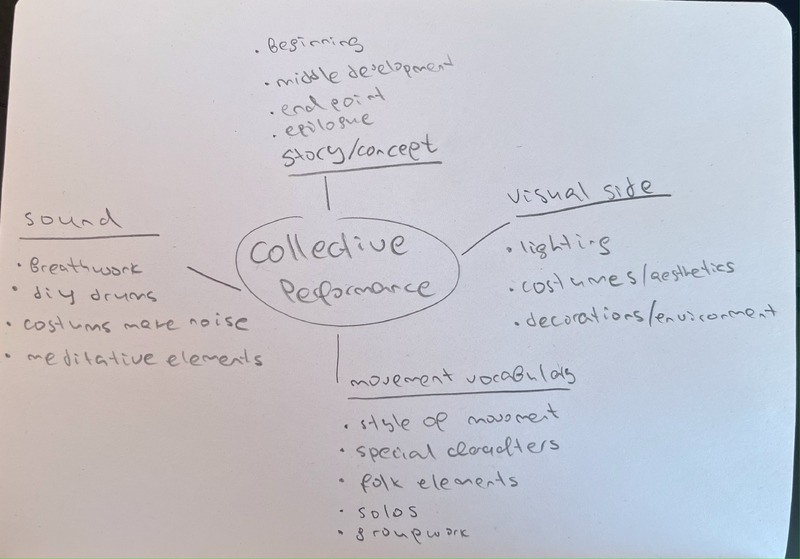 . Beginning
. middle development
. end point
. epilogue
story/concept
visual side
. lighting
. costumes/aesthetics
. decorations/enviroment
sound
. Breathwork
. diy drums
. costums make noise
. meditative elements
collective
performance
movement vocabulary
. style of movement
. special characters
. folk elements
. solos
. groupwork